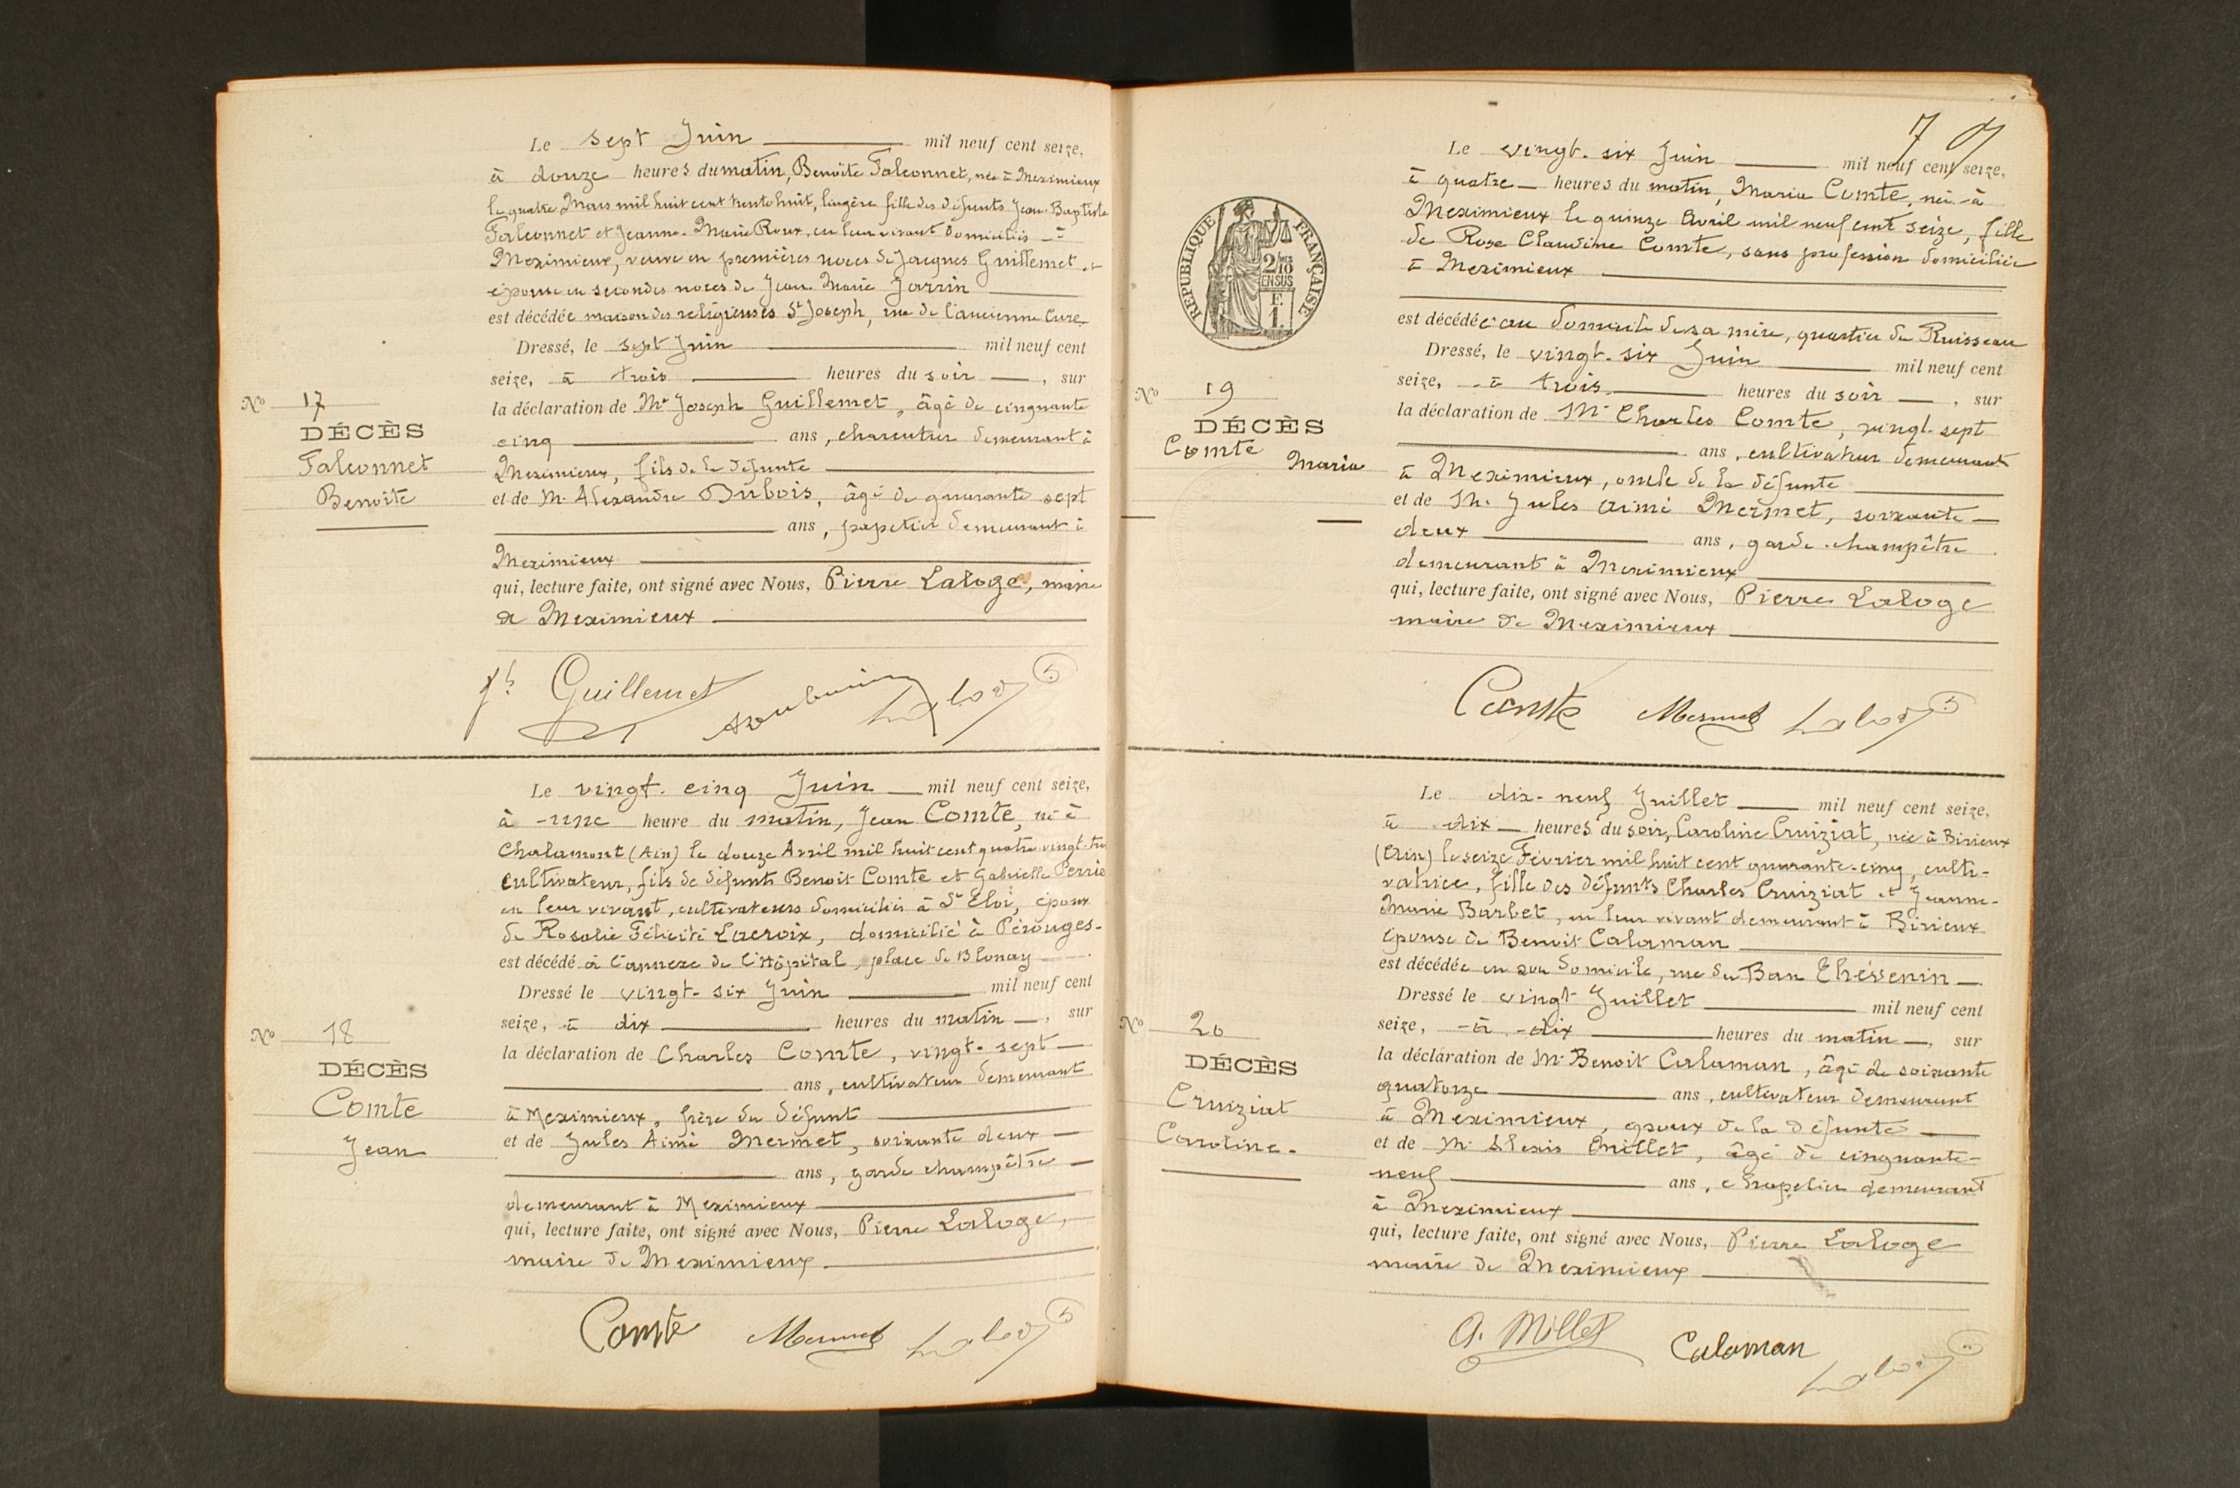 Le sept Juin mil neuf cent seize,
à douze heures du matin, Benoîte Falconnet, née à Meximieux
le quatre Mars mil huit cent trente huit, lingère fille des défunts Jean-Baptiste
Falconnet et Jeanne-Marie Roux, en leur vivant domiciliés à
Meximieux, veuve en premières noces de Jacques Guillemet et
épouse en secondes noces de Jean Marie Jarrin
est décédée maison des religieuses St Joseph, rue de l'ancienne Cure.
Dressé, le sept Juin mil neuf cent
seize, à trois heures du soir, sur
la déclaration de Mr Joseph Guillemet, âgé de cinquante
cinq ans, charcutier demeurant à
Meximieux, fils de la défunte
et de M. Alexandre Dubois, âgé de quarante sept
ans, papetier demeurant à
Meximieux
qui, lecture faite, ont signé avec Nous, Pierre Laloge, maire
de Meximieux
No 17
DÉCÈS
Falconnet
Benoîte
Jh Guillemet
Le vingt-cinq Juin mil neuf cent seize,
à une heure du matin, Jean Comte, né à
Chalamont (Ain) le douze Avril mil huit cent quatre-vingt-
cultivateur, fils de défunts Benoit Comte et Gabrielle Perrie
en leur vivant, cultivateurs domiciliés à St Eloi, époux
de Rosalie Félicité Lacroix, domicilié à Pérouges-
est décédé à l'annexe de l'Hôpital, place de Blonay
Dressé le vingt-six Juin mil neuf cent
seize, à dix heures du matin, sur
la déclaration de Charles Comte, vingt-sept
ans, cultivateur demeurant
à Meximieux, frère du défunt
et de Jules Aimé Mermet, soixante deux
ans, garde champêtre
demeurant à Meximieux
qui, lecture faite, ont signé avec Nous, Pierre Laloge,
maire de Meximieux
No 18
DÉCÈS
Comte
Jean
Comte Mermet
Le vingt-six Juin mil neuf cent seize,
à quatre heures du matin, Maria Comte, née à
Meximieux le quinze Avril mil neuf cent seize, fille
de Rose Claudine Comte, sans profession domiciliée
à Meximieux
est décédée au domicile de sa mère, quartier du Ruisseau
Dressé, le vingt-six Juin mil neuf cent
seize, à trois heures du soir, sur
la déclaration de Mr Charles Comte, vingt-sept
ans, cultivateur demeurant
à Meximieux, oncle de la défunte
et de M. Jules Aimé Mermet, soixante
deux ans, garde-champêtre
demeurant à Meximieux
qui, lecture faite, ont signé avec Nous, Pierre Laloge
maire de Meximieux
RÉPUBLIQUE FRANÇAISE
2/10
EN SUS
F.
1.
No 19
DÉCÈS
Comte
Maria
Comte Mermet
Le dix-neuf Juillet mil neuf cent seize,
à dix heures du soir, Caroline Cruiziat, née à Birieux
(Ain) le seize Février mil huit cent quarante-cinq, culti-
vatrice, fille des défunts Charles Cruiziat et Jeanne-
Marie Barbet, en leur vivant demeurant à Birieux
épouse de Benoit Calaman
est décédée en son domicile, rue du Ban Thévenin
Dressé le vingt Juillet mil neuf cent
seize, à dix heures du matin, sur
la déclaration de Mr Benoit Calaman, âgé de soixante
quatorze ans, cultivateur demeurant
à Meximieux, époux de la défunte
et de M. Alexis Millet, âgé de cinquante-
neuf ans, chapelier demeurant
à Meximieux
qui, lecture faite, ont signé avec Nous, Pierre Laloge
maire de Meximieux
No 20
DÉCÈS
Cruiziat
Caroline.
A. Millet Calaman